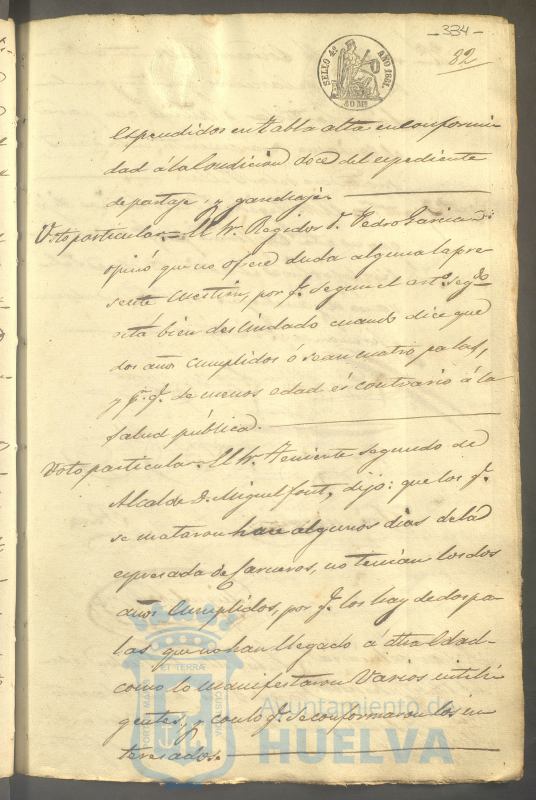 -334-
82
SELLO 4º AÑO 1861.
40 Ms
espendidos en tabla alta en conformi
dad á la Condicion doce del espediente
de partaje, y ganduaje.
Voto particular. = El Sr. Regidor D. Pedro Garcia
opinó que no ofrece duda alguna la pre
sente Cuestion, por q. segun el artº. segdo
está bien deslindado cuando dice que
dos años cumplidos ó sean cuatro palas,
y pr. q. de menos edad es contrario á la
salud pública.
Voto particular. El Sr. Teniente segundo de
Alcalde D. Miguel Font, dijo: que los q.
se mataron hace algunos dias de la
espresada de Carneros, no tenian los dos
años Cumplidos, por q. los hay de dos pa
las que no han llegado á dha edad
como lo manifestaron varios inteli
gentes, y con lo q. se conformaron los in
teresados.
PORTUS MARIS ET TERRÆ CUSTODIA
Ayuntamiento de
HUELVA